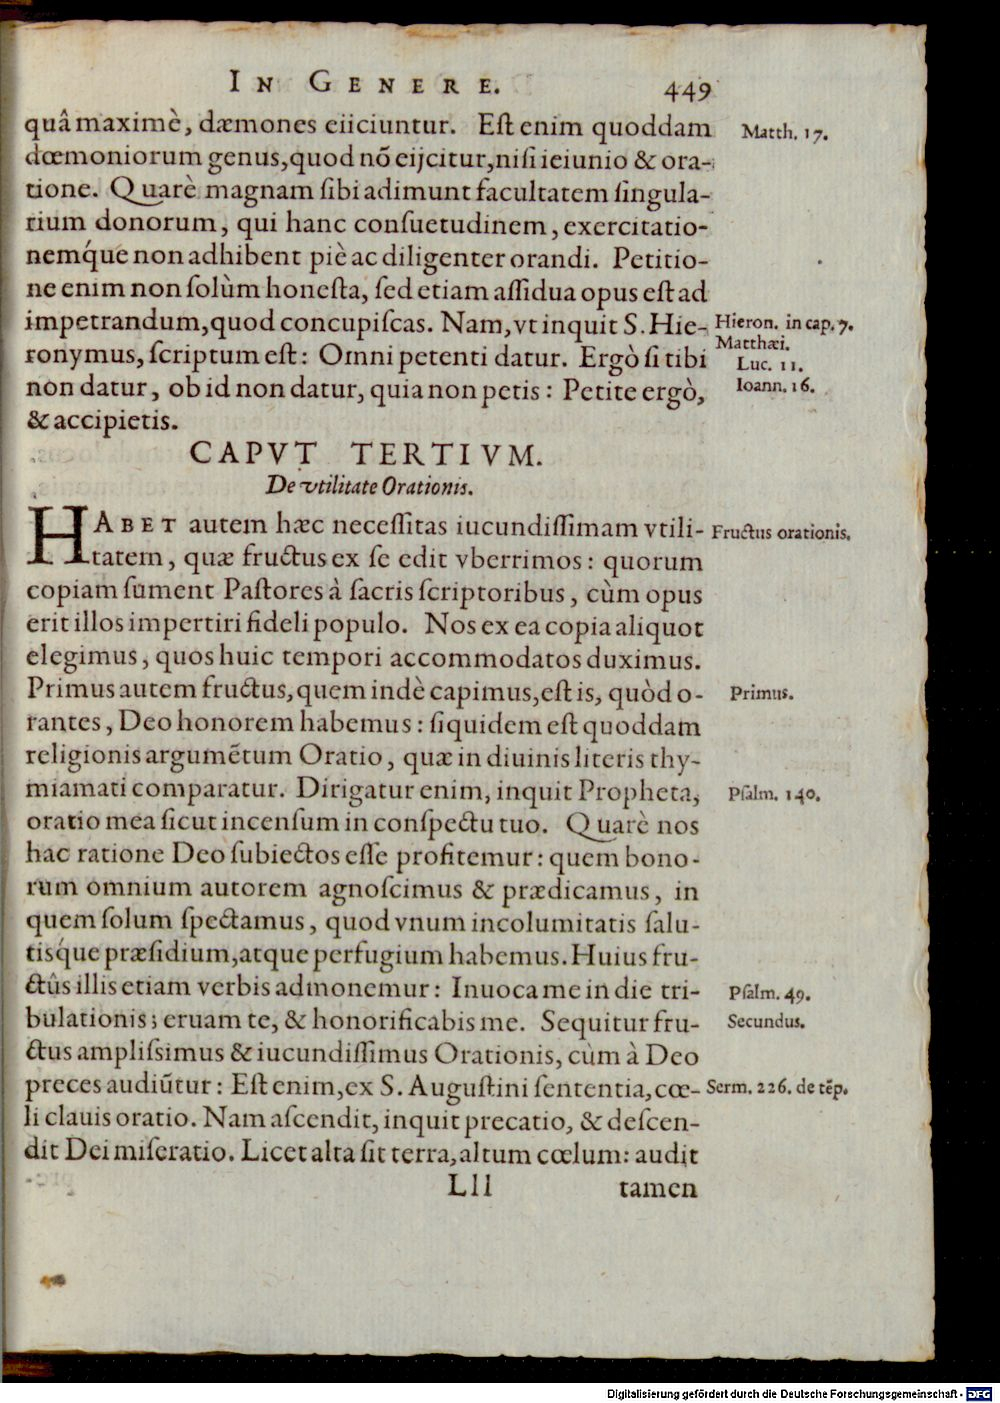 IN GENERE. 449
quâ maximè, dæmones eiiciuntur. Est enim quoddam
dœmoniorum genus, quod nō eijcitur, nisi ieiunio & ora-
tione. Quarè magnam sibi adimunt facultatem singula-
rium donorum, qui hanc consuetudinem, exercitatio-
nemq́ue non adhibent piè ac diligenter orandi. Petitio-
ne enim non solùm honesta, sed etiam assidua opus est ad
impetrandum, quod concupiscas. Nam, vt inquit S. Hie-
ronymus, scriptum est: Omni petenti datur. Ergò si tibi
non datur, ob id non datur, quia non petis: Petite ergò,
& accipietis.
Matth. 17.
Hieron. in cap. 7.
Matthæi.
Luc. 11.
Ioann. 16.
CAPVT TERTIVM.
De vtilitate Orationis.
HABET autem hæc necessitas iucundissimam vtili-
tatem, quæ fructus ex se edit vberrimos: quorum
copiam sument Pastores à sacris scriptoribus, cùm opus
erit illos impertiri fideli populo. Nos ex ea copia aliquot
elegimus, quos huic tempori accommodatos duximus.
Primus autem fructus, quem indè capimus, est is, quòd o-
rantes, Deo honorem habemus: siquidem est quoddam
religionis argumētum Oratio, quæ in diuinis literis thy-
miamati comparatur. Dirigatur enim, inquit Propheta,
oratio mea sicut incensum in conspectu tuo. Quarè nos
hac ratione Deo subiectos esse profitemur: quem bono-
rum omnium autorem agnoscimus & prædicamus, in
quem solum spectamus, quod vnum incolumitatis salu-
tisq́ue præsidium, atque perfugium habemus. Huius fru-
ctûs illis etiam verbis admonemur: Inuoca me in die tri-
bulationis; eruam te, & honorificabis me. Sequitur fru-
ctus amplissimus & iucundissimus Orationis, cùm à Deo
preces audiūtur: Est enim, ex S. Augustini sententia, cœ-
li clauis oratio. Nam ascendit, inquit precatio, & descen-
dit Dei miseratio. Licet alta sit terra, altum cœlum: audit
Fructus orationis.
Primus.
Psalm. 140.
Psalm. 49.
Secundus.
Serm. 226. de tēp.
Lll tamen
Digitalisierung gefördert durch die Deutsche Forschungsgemeinschaft - DFG